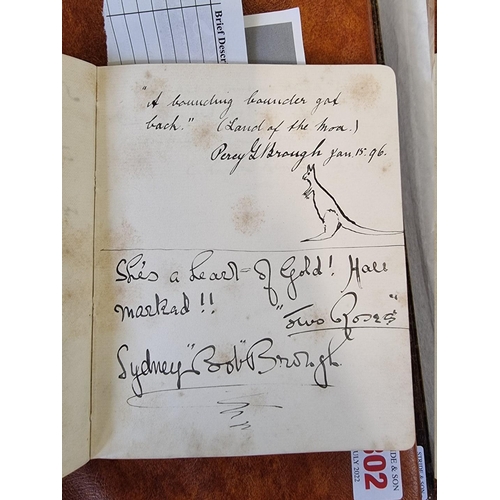 Brief Descri
"A bounding bounder got
back." (Land of the Moa.)
Percy G Brough Jan. 15. 96.
She's a heart-of Gold! Hall
marked!!
"Two Roses"
Sydney "Bob" Brough.
302
DE & SON
JULY 2022
STRIDE & SON